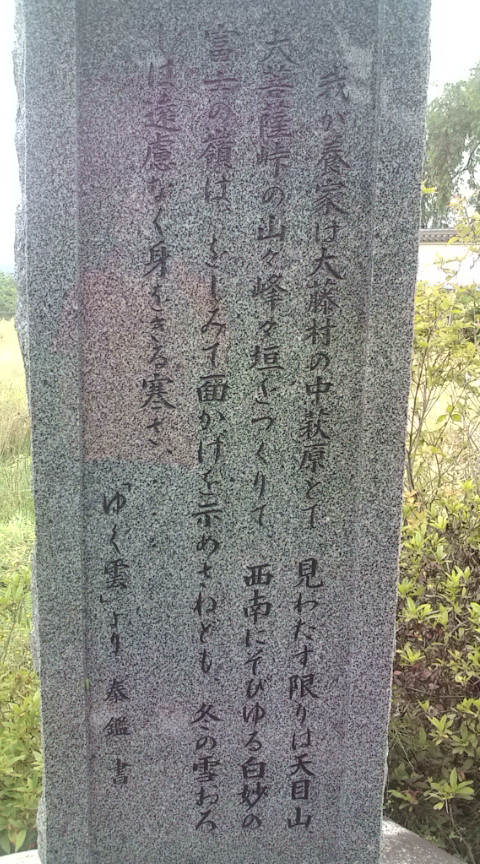 我が養家は大藤村の中萩原とて 見わたす限りは天目山
大菩薩峠の山々峰々垣をつくりて、西南にそびゆる白妙の
富士の嶺は、をしみて面かげを示めさねども、冬の雪おろ
しは遠慮なく身をきる寒さ、
「ゆく雲」より 泰鑑 書